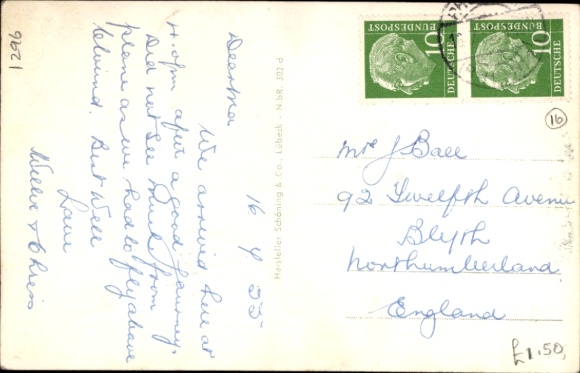 1299
16 4 55
Deartma
We arrived here at
4.0pm after a good journey.
Did not see much from
plane as we had to fly above
cloud. But Well
Love
Willie + Chriss
Hersteller Schöning & Co., Lübeck - N.bR. 302 d
DEUTSCHE
BUNDESPOST
10
DEUTSCHE
BUNDESPOST
10
16
Mrs J Ball
92 Twelfth Avenue
Blyth
Northumberland
England
£1.50,